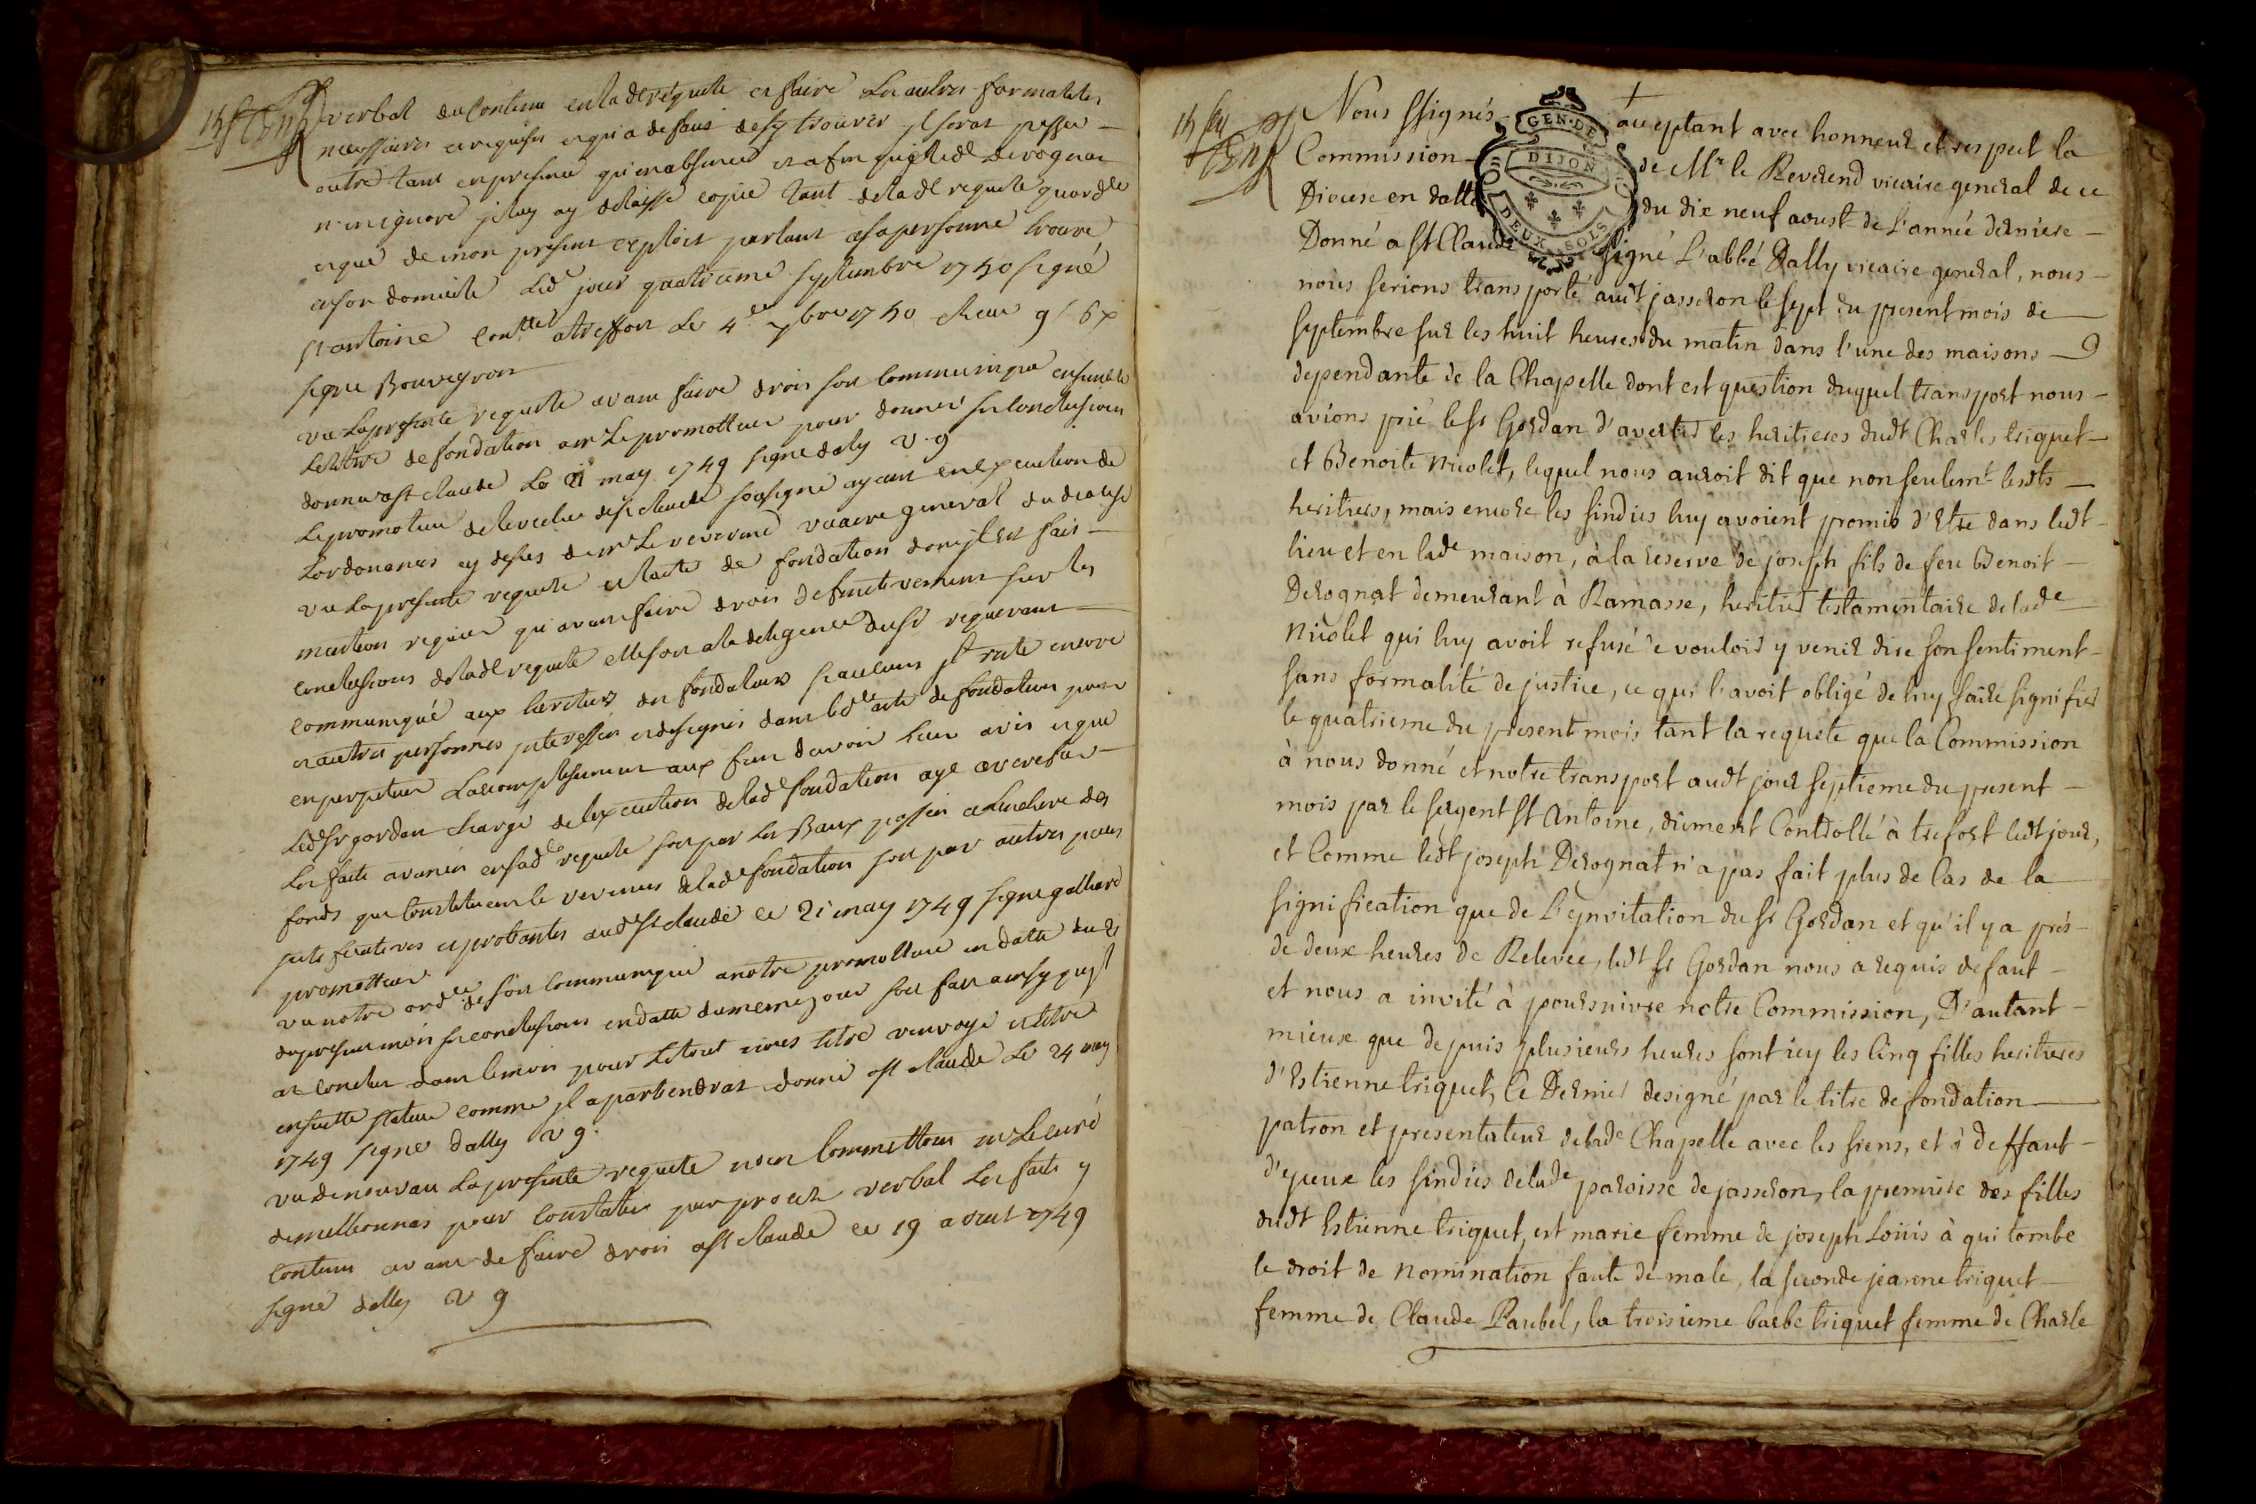 verbal du Contenu en lad requete et faire les autres formalites
necessaires et requises et qu'a defaut de sy trouver jl serat passer
outre tant en presence qu'en absence et afin quil led derognat
n'en ignore je luy ay delaisse copie tant de lad requete quord
et que de mon present exploit parlant a sa personne trouvé
a son domicile led jour quatrieme septembre 1750 signé
st antoine Contlle a treffort le 4e 7bre 1750 Reçu 9 s 6 d
signe Bouveyron
vu la presente requete avant faire droit soit communiqué ensemble
le titre de fondation a mr le promotteur pour donner ses conclusions
donné a st claude le 21 may 1749 signe dally v. g
Le promoteur de l'eveche de st claude soussigné ayant en execution de
Lordonance cy dessus de mr Le reverend vicaire general du diocese
vu la presente requete et lacte de fondation dont jl est fait
mention requiert qu'avant faire droit definitivement sur les
conclusions de lad requete elle soit a la diligence dud sr requerant
communiqué aux heritiers du fondateur si aucuns jl reste encore
et autres personnes jnteressées et designées dans led acte de fondation pour
en perpetuer Laccomplissement aux fins davoir leur avis et que
Led Sr gordan chargé de lexecution de lad fondation aye averer
les faits avancés en sade requete soit par les Baux passés a Lenchere des
fonds qui Constituent le revenus de lade fondation soit par autres pieces
justificatives et probantes aud st claude ce 21 may 1749 signe galliard
promotteur
vu notre ordce de soit Communiqué a notre promotteur en datte du 21
du present mois ses conclusions en datte du meme jour soit fait ainsy quil
est conclu dans le mois pour le tout a nous etre renvoyé et etre
ensuitte statué comme jl apartiendrat donné a st claude le 24 may
1749 signe dally v g.
vu de nouveau La presente requete nous Commettons mr Le curé
de meillonnas pour Constater par procez verbal les faits y
contenus avant de faire droit a st claude ce 19 aoust 1749
signe dally v g
GEN. DE
DIJON
DEUX SOLS
Nous ssignés acceptant avec honneur et respect la
Commission de Mr le Reverend vicaire general de ce
Diocese en datte du dix neuf aoust de l'année derniere
Donné a St Claude signé L'abbé Dally vicaire general, nous
nous serions transporté audt jasseron le sept du present mois de
septembre sur les huit heures du matin dans l'une des maisons
dependante de la Chapelle dont est question duquel transport nous
avions prié le sr Gordan d'avertir les heritieres dudt Charles triquet
et Benoite Nicolet, lequel nous auroit dit que non seulemt lesdts
heritiers, mais encore les sindics luy avoient promis d'Etre dans ledt
lieu et en lade maison, à la reserve de joseph fils de feu Benoit
Derognat demeurant à Ramasse, heritier testamentaire de lade
Nicolet qui luy avoit refusé de vouloir y venir dire son sentiment
sans formalité de justice, ce qui l'avoit obligé de luy faire signifier
le quatrieme du present mois tant la requete que la Commission
à nous donné et notre transport audt jour septieme du present
mois par le sergent St Antoine, düment Controllé à trefort ledt jour,
et Comme ledt joseph Derognat n'a pas fait plus de Cas de la
signification que de L'ynvitation du sr Gordan et qu'il y a prés
de deux heures de Relevée, ledt sr Gordan nous a requis defaut
et nous a invité à poursuivre notre Commission, D'autant
mieux que depuis plusieurs heures sont icy les Cinq filles heritieres
d'Estienne triquet, Ce Dernier designé par le titre de fondation
patron et presentateur de lade Chapelle avec les siens, et à deffaut
d'yceux les sindics de lade paroisse de jasseron, la premiere des filles
dudt Estienne triquet, est marie femme de joseph Loüis à qui tombe
le droit de Nomination faute de male, la seconde jeanne triquet
femme de Claude Paubel, la troisieme barbe triquet femme de Charle